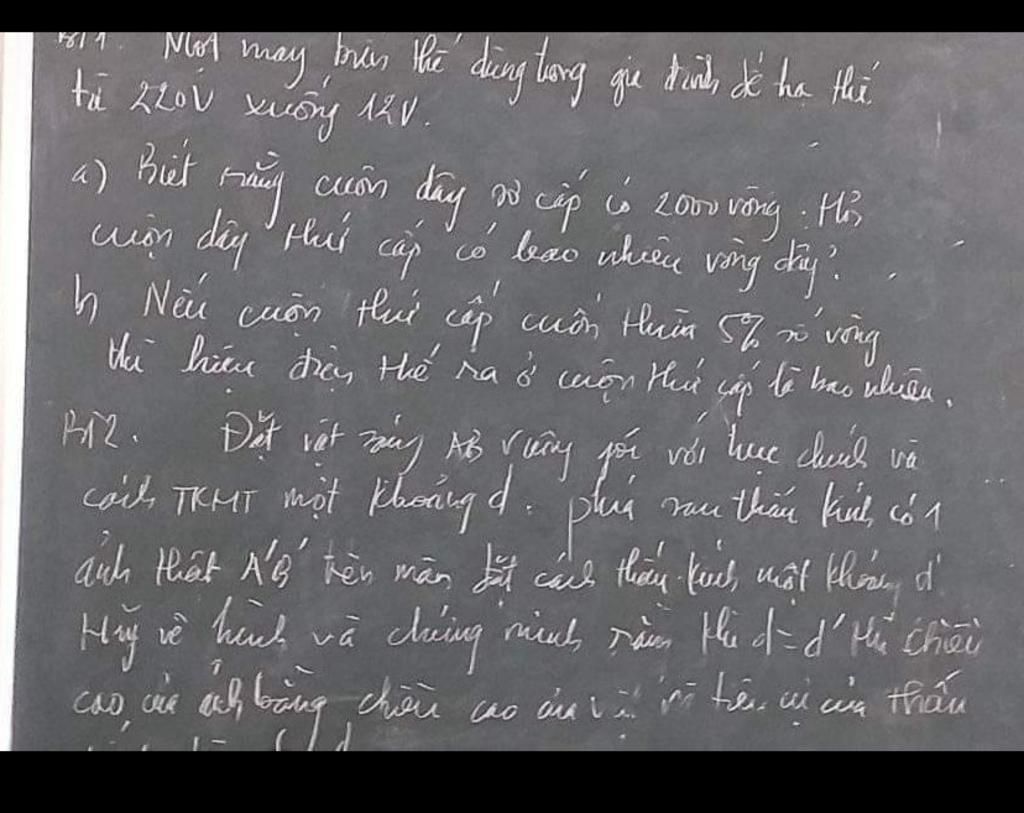 BT1. Một máy biến thế dùng trong gia đình để hạ thế
từ 220V xuống 12V.
a) Biết rằng cuộn dây sơ cấp có 2000 vòng. Hỏi
cuộn dây thứ cấp có bao nhiêu vòng dây?
b) Nếu cuộn thứ cấp cuốn thừa 5% số vòng
thì hiệu điện thế ra ở cuộn thứ cấp là bao nhiêu.
BT2. Đặt vật sáng AB vuông góc với trục chính và
cách TKHT một khoảng d. phía sau thấu kính có 1
ảnh thật A'B' trên màn đặt cách thấu kính một khoảng d'
Hãy vẽ hình và chứng minh rằng khi d=d' thì chiều
cao của ảnh bằng chiều cao của vật và tiêu cự của thấu